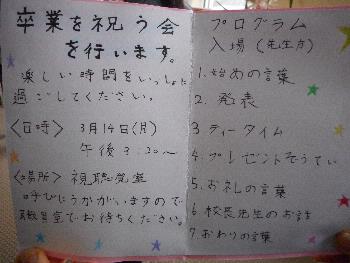 卒業を祝う会
を行います。
楽しい時間をいっしょに
過ごしてください。
〈日時〉 3月14日(月)
午後3:20〜
〈場所〉 視聴覚室
呼びにうかがいますので
教室でお待ちください。
プログラム
入場(先生方)
1.始めの言葉
2.発表
3.ティータイム
4.プレゼントぞうてい
5.お礼の言葉
6.校長先生のお話
7.おわりの言葉